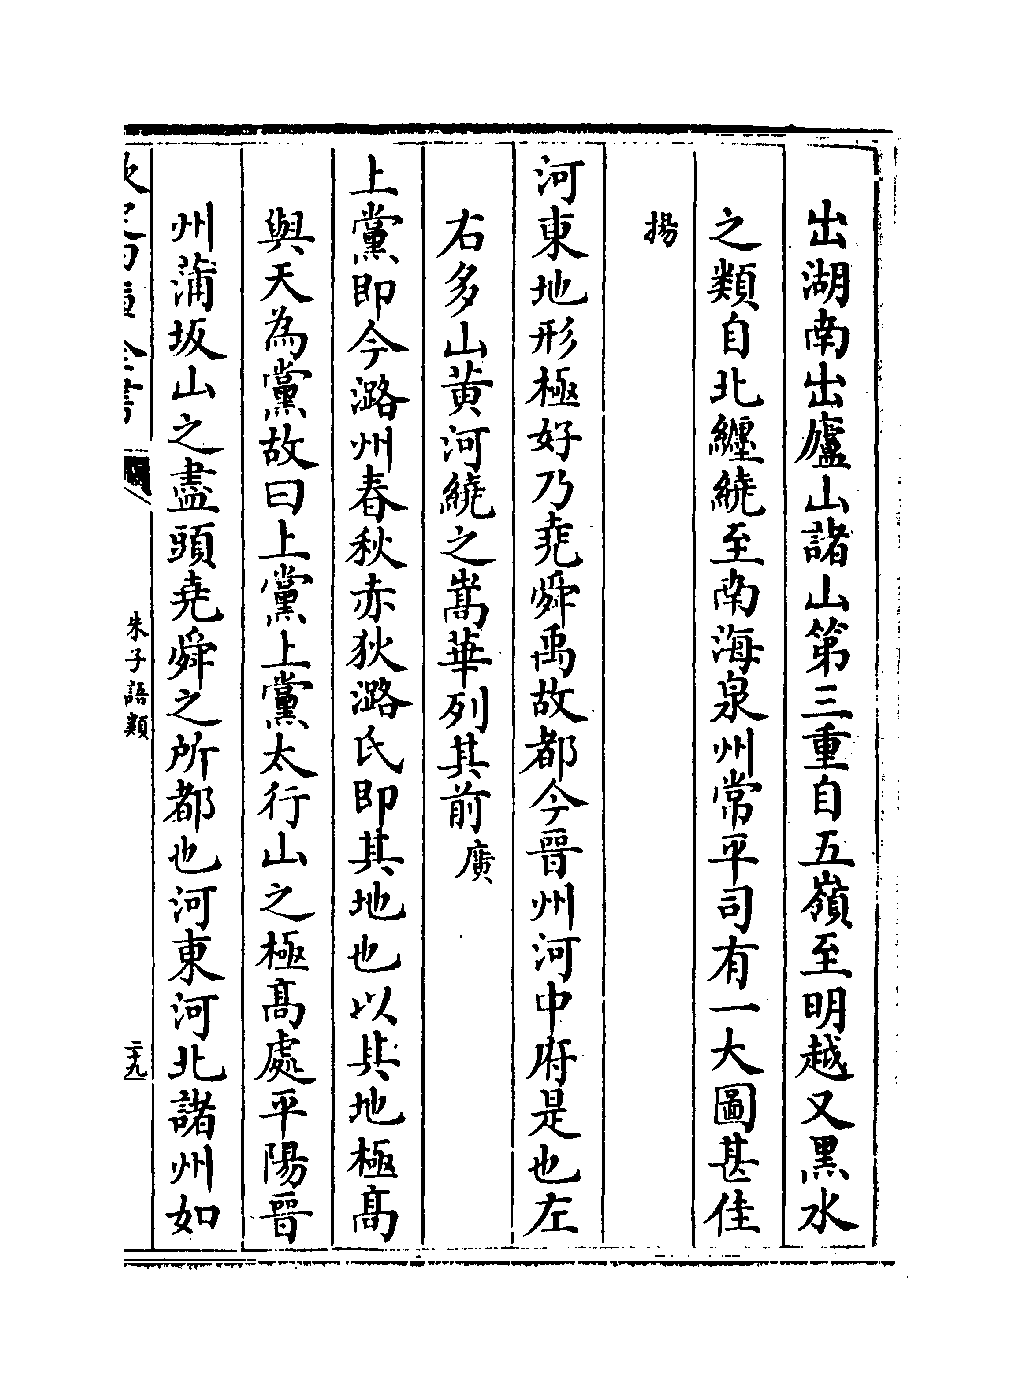 出湖南出廬山諸山第三重自五嶺至明越又黒水
之類自北纏繞至南海泉州常平司有一大圖甚佳
揚
河東地形極好乃堯舜禹故都今晉州河中府是也左
右多山黄河繞之嵩華列其前廣
上黨即今潞州春秋赤狄潞氏即其地也以其地極髙
與天為黨故曰上黨上黨太行山之極髙處平陽晉
州蒲坂山之盡頭堯舜之所都也河東河北諸州如
欽定四庫全書
朱子語類
二十九